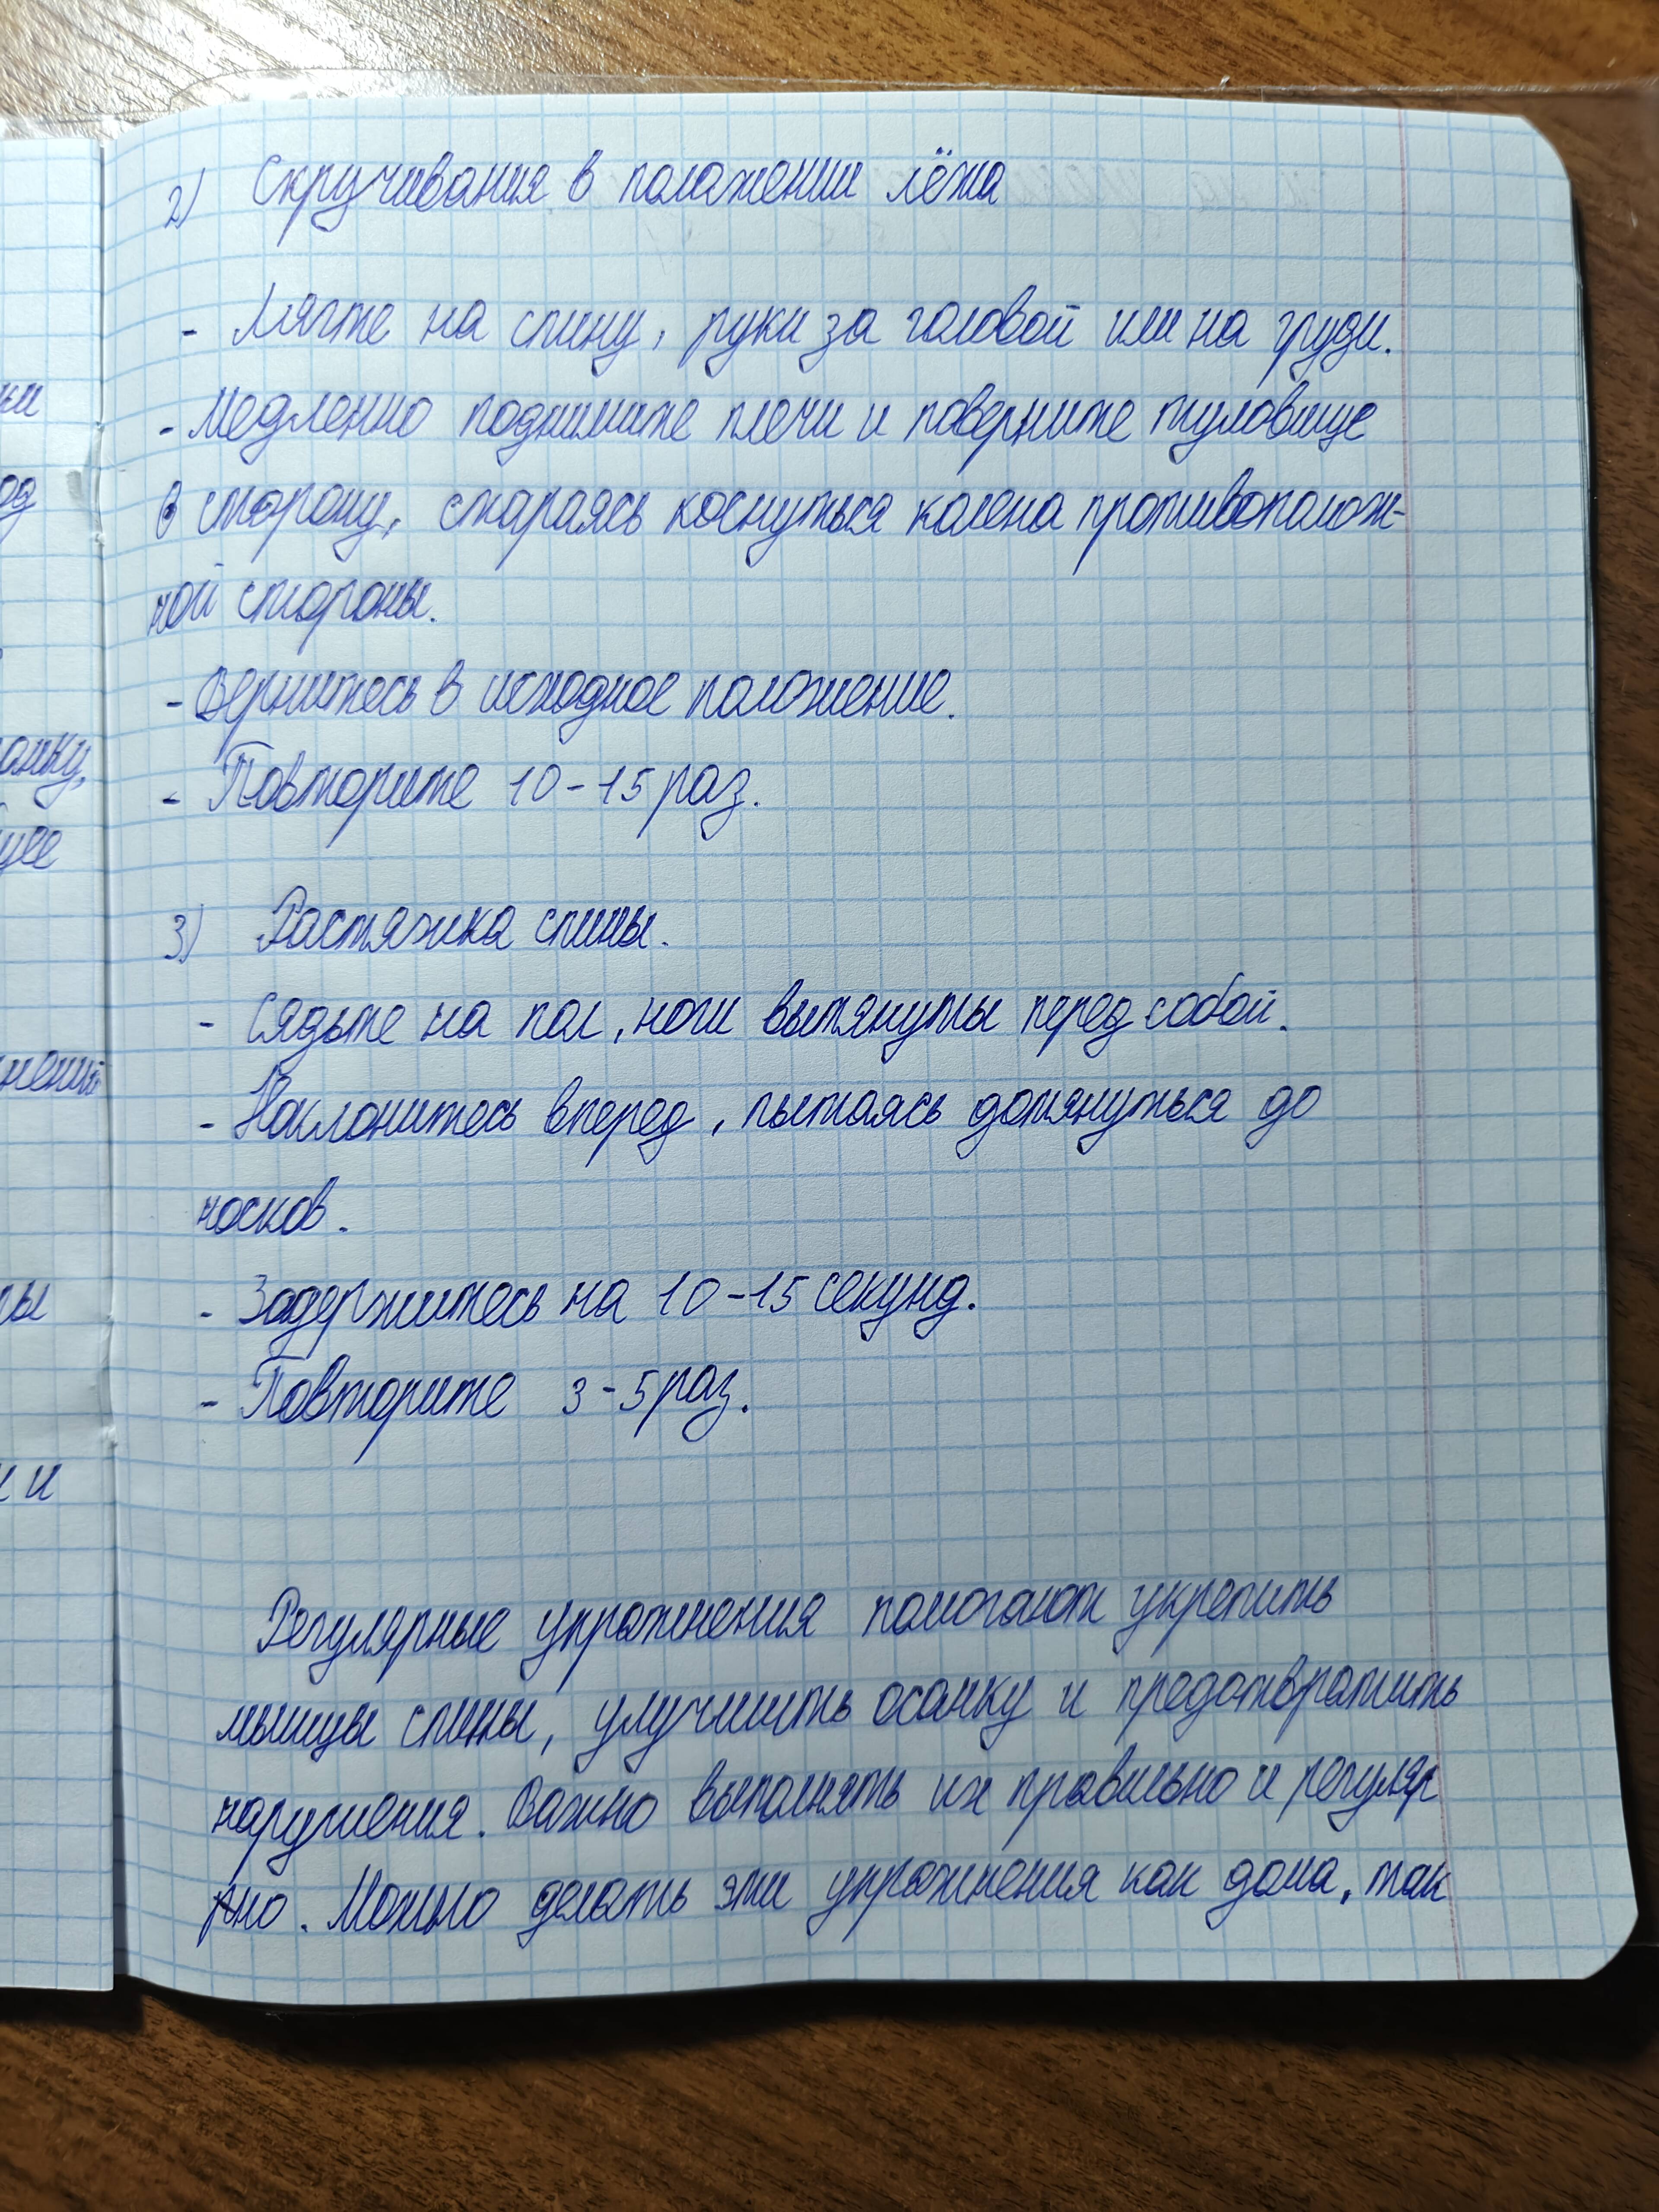 2) Скручивания в положении лёжа
- Лягте на спину, руки за головой или на груди.
- Медленно поднимите плечи и поверните туловище
в сторону, стараясь коснуться колена противополож-
ной стороны.
- Вернитесь в исходное положение.
- Повторите 10-15 раз.
3) Растяжка спины.
- Сядьте на пол, ноги вытянуты перед собой.
- Наклонитесь вперед, пытаясь дотянуться до
носков.
- Задержитесь на 10-15 секунд.
- Повторите 3-5 раз.
Регулярные упражнения помогают укрепить
мышцы спины, улучшить осанку и предотвратить
нарушения. Важно выполнять их правильно и регуляр
но. Можно делать эти упражнения как дома, так